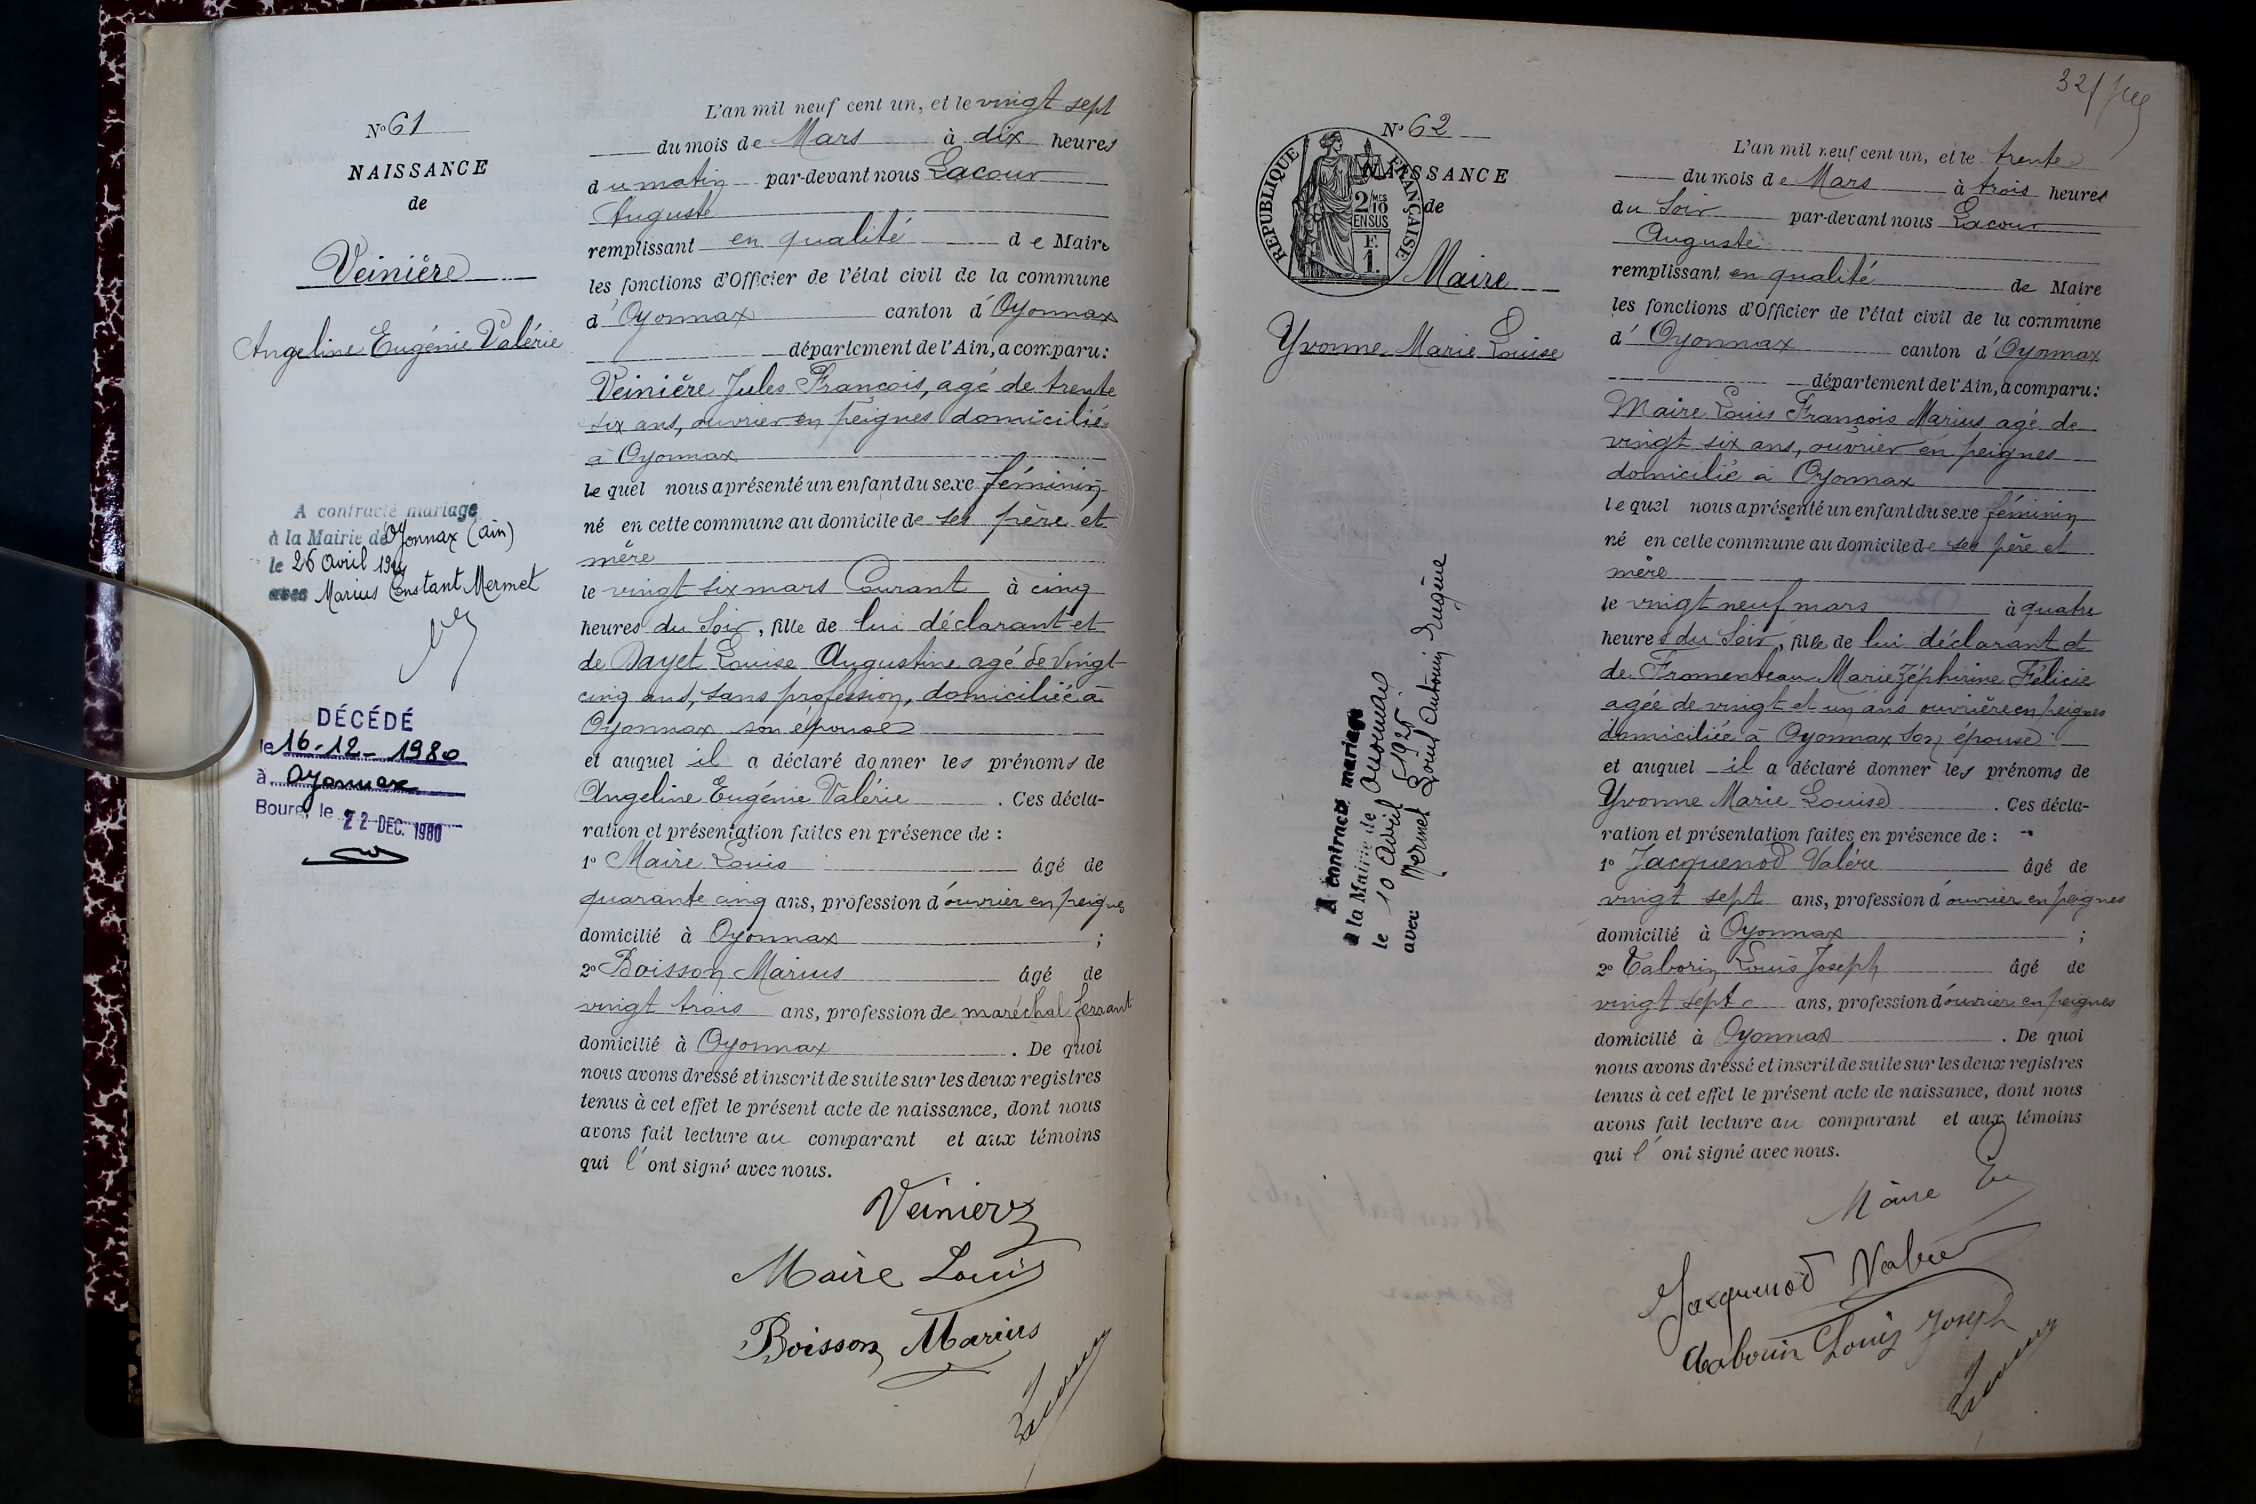 N° 61
NAISSANCE
de
Veinière
Angeline Eugénie Valérie
A contracté mariage
à la Mairie de Oyonnax (Ain)
le 26 Avril
avec Marius Constant Mermet
DÉCÉDÉ
le 16-12-1980
à Oyonnax
Bourg, le 22 DEC. 1980
L'an mil neuf cent un, et le vingt sept
du mois de Mars à dix heures
du matin par-devant nous Lacour
Auguste
remplissant en qualité de Maire
les fonctions d'Officier de l'état civil de la commune
d'Oyonnax canton d'Oyonnax
département de l'Ain, a comparu:
Veinière Jules François, agé de trente
six ans, ouvrier en peignes domicilié
à Oyonnax
le quel nous a présenté un enfant du sexe féminin
né en cette commune au domicile de ses père et
mère
le vingt six mars Courant à cinq
heures du Soir, fille de lui déclarant et
de Dayet Louise Augustine agé de vingt
cinq ans, sans profession, domiciliée à
Oyonnax son épouse
et auquel il a déclaré donner les prénoms de
Angeline Eugénie Valérie. Ces décla-
ration et présentation faites en présence de :
1° Maire Louis âgé de
quarante cinq ans, profession d'ouvrier en peignes
domicilié à Oyonnax ;
2° Boisson Marius âgé de
vingt trois ans, profession de maréchal ferrant
domicilié à Oyonnax. De quoi
nous avons dressé et inscrit de suite sur les deux registres
tenus à cet effet le présent acte de naissance, dont nous
avons fait lecture au comparant et aux témoins
qui l'ont signé avec nous.
Veinière
Maire Louis
Boisson Marius
Lacour
32
N° 62
NAISSANCE
de
REPUBLIQUE FRANÇAISE
2/10 MES
EN SUS
F.
1.
Maire
Yvonne Marie Louise
A contracté mariage
à la Mairie de Oyonnax
le 10 avril 1925
avec Mermet Louis Antonin Eugène
L'an mil neuf cent un, et le trente
du mois de Mars à trois heures
du Soir par-devant nous Lacour
Auguste
remplissant en qualité de Maire
les fonctions d'Officier de l'état civil de la commune
d'Oyonnax canton d'Oyonnax
département de l'Ain, a comparu:
Maire Louis François Marius agé de
vingt six ans, ouvrier en peignes
domicilié à Oyonnax
le quel nous a présenté un enfant du sexe féminin
né en cette commune au domicile de ses père et
mère
le vingt neuf mars à quatre
heures du Soir, fille de lui déclarant et
de Fromenteau Marie Zéphirine Félicie
agée de vingt et un ans ouvrière en peignes
domiciliée à Oyonnax son épouse
et auquel il a déclaré donner les prénoms de
Yvonne Marie Louise. Ces décla-
ration et présentation faites en présence de :
1° Jacquenod Valère âgé de
vingt sept ans, profession d'ouvrier en peignes
domicilié à Oyonnax ;
2° Taborin Louis Joseph âgé de
vingt sept ans, profession d'ouvrier en peignes
domicilié à Oyonnax. De quoi
nous avons dressé et inscrit de suite sur les deux registres
tenus à cet effet le présent acte de naissance, dont nous
avons fait lecture au comparant et aux témoins
qui l'ont signé avec nous.
Maire
Jacquenod Valère
Taborin Louis Joseph
Lacour